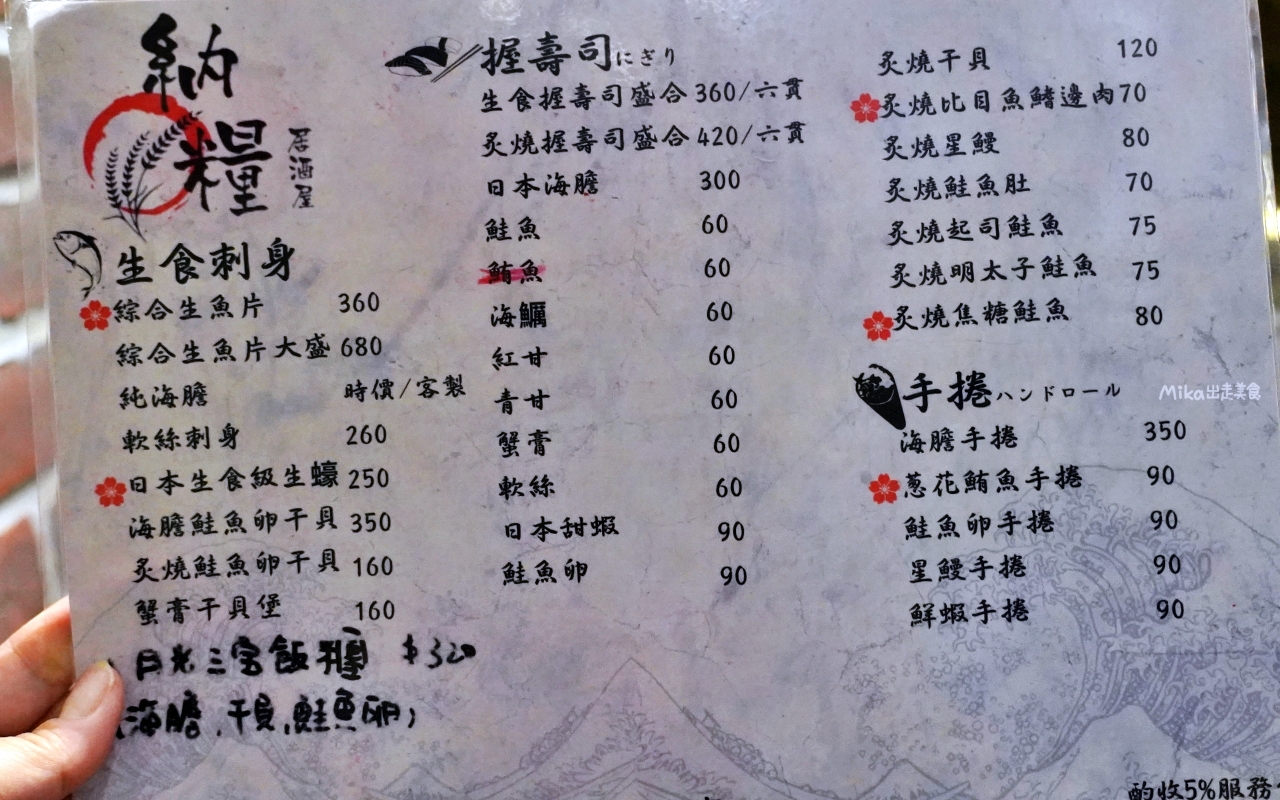 納糧
居酒屋
生食刺身
綜合生魚片 360
綜合生魚片大盛 680
純海膽 時價/客製
軟絲刺身 260
日本生食級生蠔 250
海膽鮭魚卵干貝 350
炙燒鮭魚卵干貝 160
蟹膏干貝堡 160
月光三宝飯糰 $320
(海膽、干貝、鮭魚卵)
握壽司にぎり
生食握壽司盛合 360/六貫
炙燒握壽司盛合 420/六貫
日本海膽 300
鮭魚 60
鮪魚 60
海鱺 60
紅甘 60
青甘 60
蟹膏 60
軟絲 60
日本甜蝦 90
鮭魚卵 90
炙燒干貝 120
炙燒比目魚鰭邊肉 70
炙燒星鰻 80
炙燒鮭魚肚 70
炙燒起司鮭魚 75
炙燒明太子鮭魚 75
炙燒焦糖鮭魚 80
手捲ハンドロール
海膽手捲 350
蔥花鮪魚手捲 90
鮭魚卵手捲 90
星鰻手捲 90
鮮蝦手捲 90
酌收5%服務
Mika出走美食